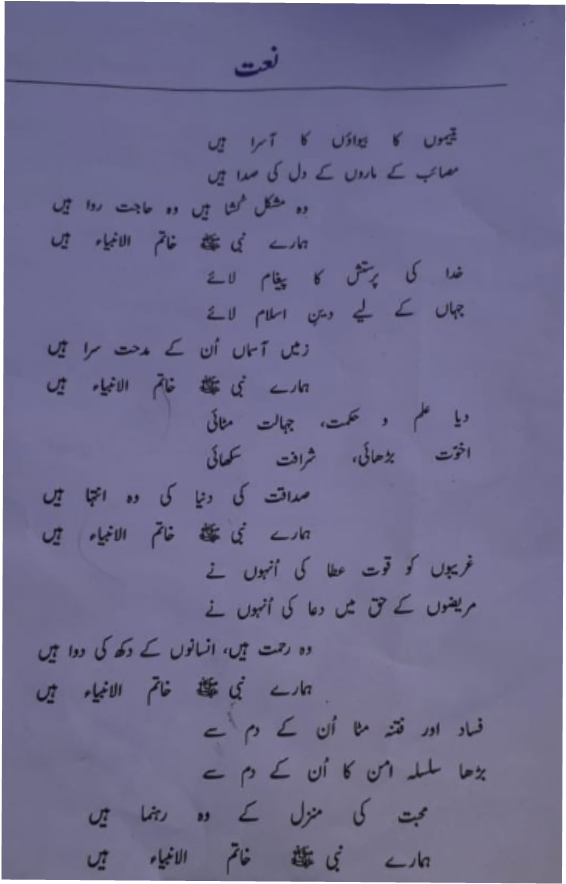 نعت
یتیموں کا بیواؤں کا آسرا ہیں
مصائب کے ماروں کے دل کی صدا ہیں
وہ مشکل کُشا ہیں وہ حاجت روا ہیں
ہمارے نبی ﷺ خاتم الانبیاء ہیں
خدا کی پرستش کا پیغام لائے
جہاں کے لیے دینِ اسلام لائے
زمیں آسماں اُن کے مدحت سرا ہیں
ہمارے نبی ﷺ خاتم الانبیاء ہیں
دیا علم و حکمت، جہالت مٹائی
اخوّت بڑھائی، شرافت سکھائی
صداقت کی دنیا کی وہ انتہا ہیں
ہمارے نبی ﷺ خاتم الانبیاء ہیں
غریبوں کو قوت عطا کی اُنہوں نے
مریضوں کے حق میں دعا کی اُنہوں نے
وہ رحمت ہیں، انسانوں کے دکھ کی دوا ہیں
ہمارے نبی ﷺ خاتم الانبیاء ہیں
فساد اور فتنہ مٹا اُن کے دم سے
بڑھا سلسلہ امن کا اُن کے دم سے
محبت کی منزل کے وہ رہنما ہیں
ہمارے نبی ﷺ خاتم الانبیاء ہیں